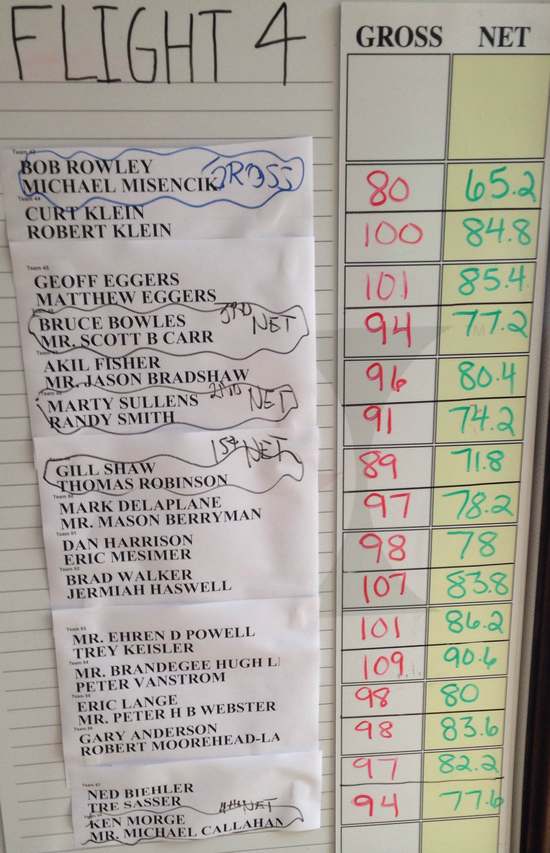 FLIGHT 4 GROSS NET
BOB ROWLEY GROSS
MICHAEL MISENCIK 80 65.2
CURT KLEIN
ROBERT KLEIN 100 84.8
Team 45
GEOFF EGGERS
MATTHEW EGGERS 101 85.4
BRUCE BOWLES 3RD NET
MR. SCOTT B CARR 94 77.2
AKIL FISHER
MR. JASON BRADSHAW 96 80.4
MARTY SULLENS 2ND NET
RANDY SMITH 91 74.2
1st NET
GILL SHAW
THOMAS ROBINSON 89 71.8
MARK DELAPLANE
MR. MASON BERRYMAN 97 78.2
DAN HARRISON
ERIC MESIMER 98 78
BRAD WALKER
JERMIAH HASWELL 107 83.8
MR. EHREN D POWELL
TREY KEISLER 101 86.2
MR. BRANDEGEE HUGH L
PETER VANSTROM 109 90.6
ERIC LANGE
MR. PETER H B WEBSTER 98 80
GARY ANDERSON
ROBERT MOOREHEAD-LA 98 83.6
NED BIEHLER
TRE SASSER 97 82.2
KEN MORGE 4th NET
MR. MICHAEL CALLAHAN 94 77.6